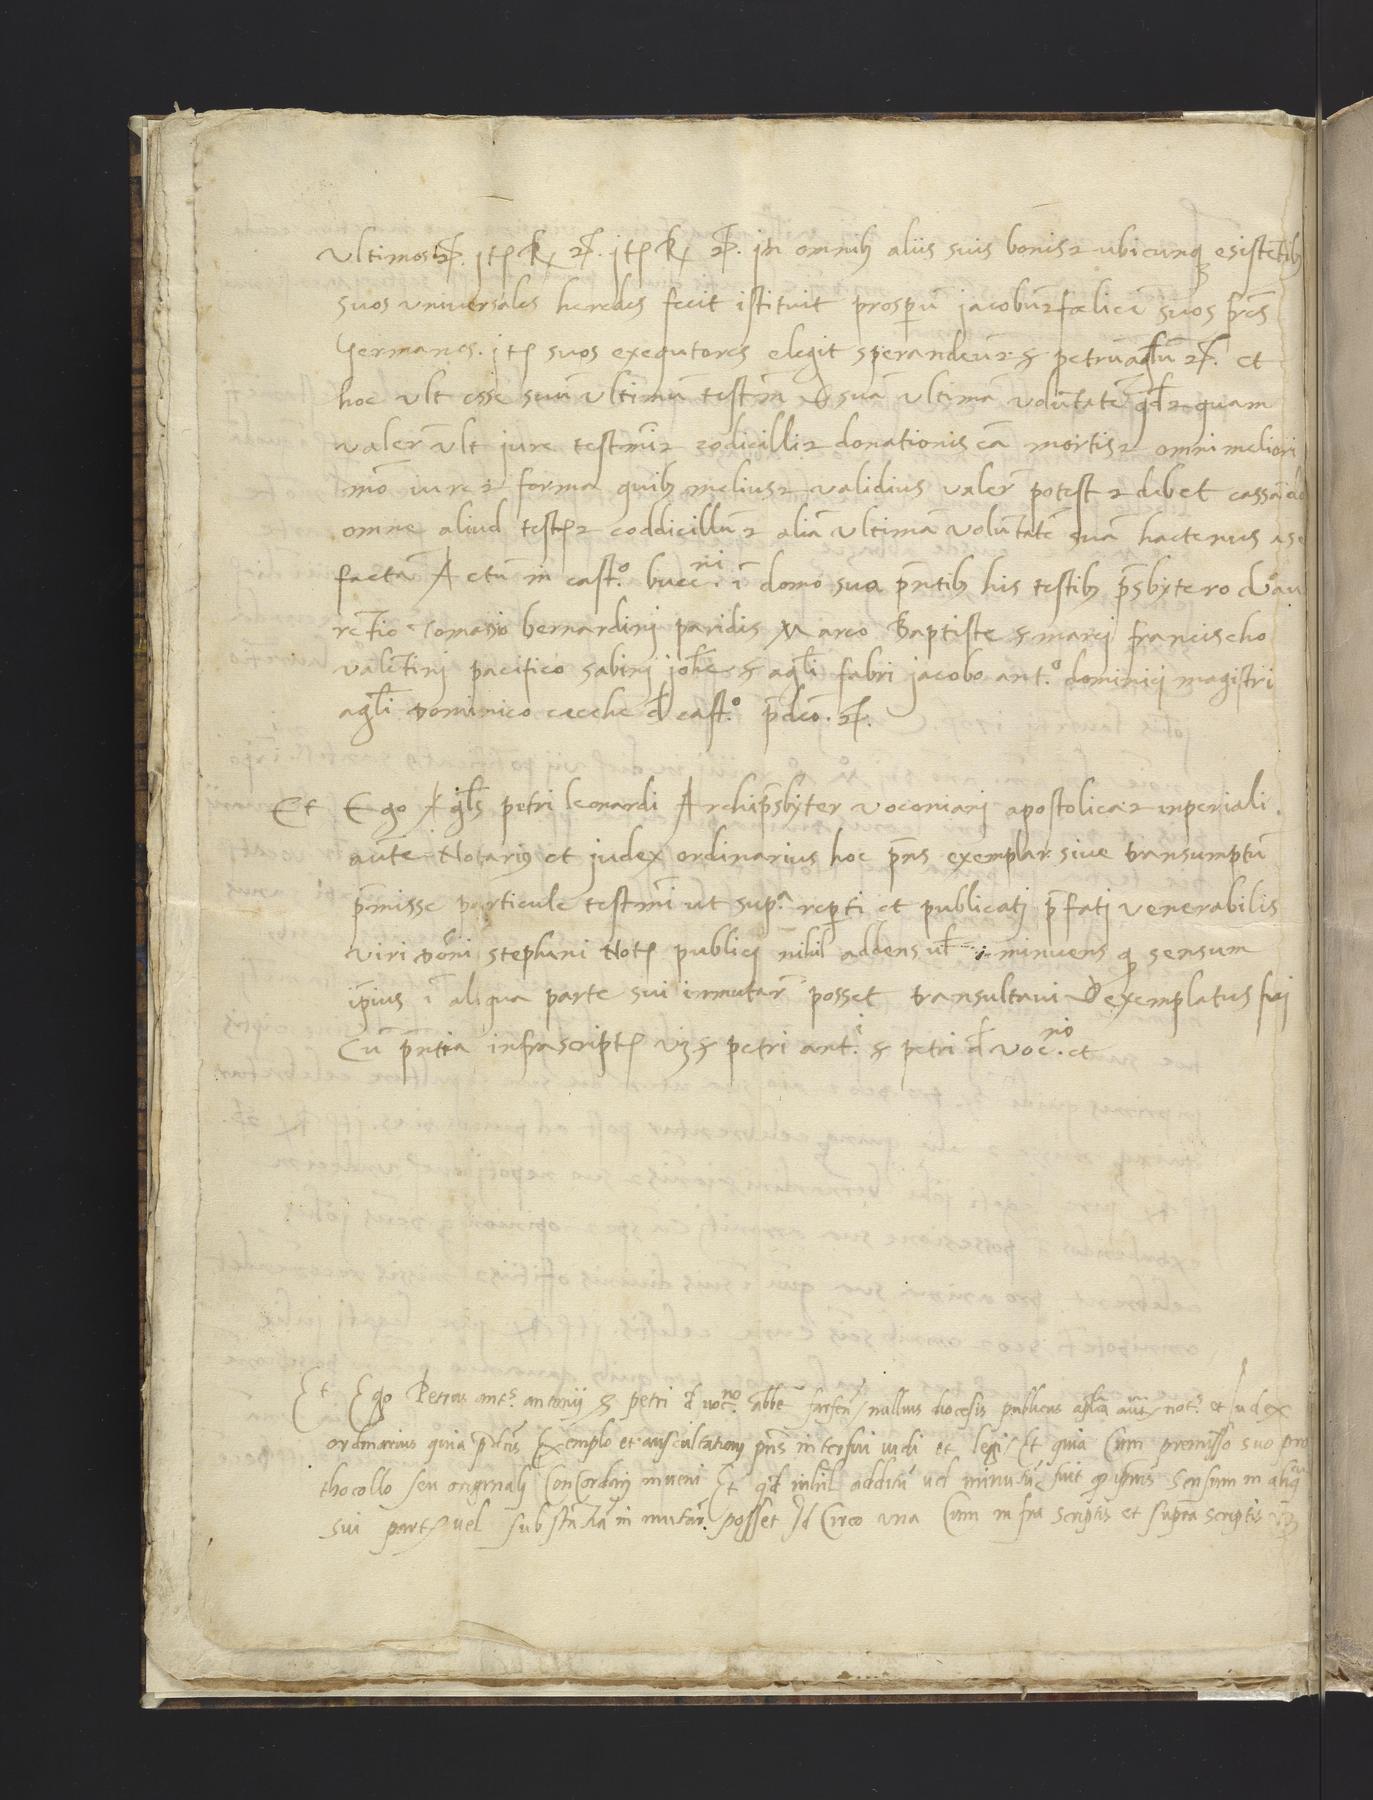 Ultimos ⁊cͣ. jtē R̃ ⁊cͣ. jtē R̃ ⁊cͣ. jn omnibꝫ aliis suis bonis ⁊ ubicunqꝫ esistētibꝫ
suos universales heredes fecit istituit prosperū jacobū ⁊ fœlicē suos fr̃es
Germanos. jtē suos exequtores elegit sperandeuꝫ ⁊ s petrū agl̃u ⁊cͣ. et
hoc vult esse suū Ultimū testm̄ & suā Ultimā voluntatē qd̃ ⁊ quam
valer̃ vult jure testm̄i ⁊ codicilli ⁊ donationis cā mortis ⁊ omni meliori
mõ iure ⁊ forma quibꝫ melius ⁊ validius valer̃ potest ⁊ debet cassãdo
omne aliud testm̄ ⁊ coddicillū ⁊ aliā Ultimā voluntatē suā hactenus a se
factā Actū in castͦ. buccni. ĩ domo sua p̃ntibꝫ his testibꝫ p̃sbytero d̃o lau
rẽtio Tomasio bernardinj paridis Marco Baptiste s marcj francischo
valẽtinj pacifico sabinj joh̃e s agl̃i fabri jacobo antͦ. dominicj magistri
agl̃i Dominico cecche d̃ castͦ. p̃dcõ. ⁊cͣ.
Et Ego Agl̃s petri leonardi Archip̃sbyter voconiarj apostolica ⁊ inperiali.
aũte Notariꝰ et judex ordinarius hoc p̃ns exemplar sive transumptū
p̃misse particule testm̄i ut supͣ. rep̃ti et publicatj p̃fatj venerabilis
viri dõni stephani Notꝭ publicj nihil addens ul̃ minuens qꝫ sensum
ip̃ius ĩ aliqua parte sui inmutar̃ posset transultavi & exemplatus fuj
Cū p̃ntia infrascriptꝭ vꝫ s petri antⁱ. s petri d̃ vocno. et
Et Ego Petrus antꝰ. antonij s petri d̃ vocno. abb̃e farfeñ nullius diocesis publicus apl̃ica aũte notꝰ. et Judex
ordinarius quia p̃dc̃is Exemplo et auscultationj p̃ns interfui vidi et legi Et quia Cum premisso suo pro
thocollo seu originalj Concordarj inveni Et qd̃ nihil additū vel minutū fuit qꝫ ip̃ius Sensum in aliqua
sui partꝭ vel substãtiā in mutar̃. posset Id Circo una Cum infra scriptis et supra scriptis vꝫ